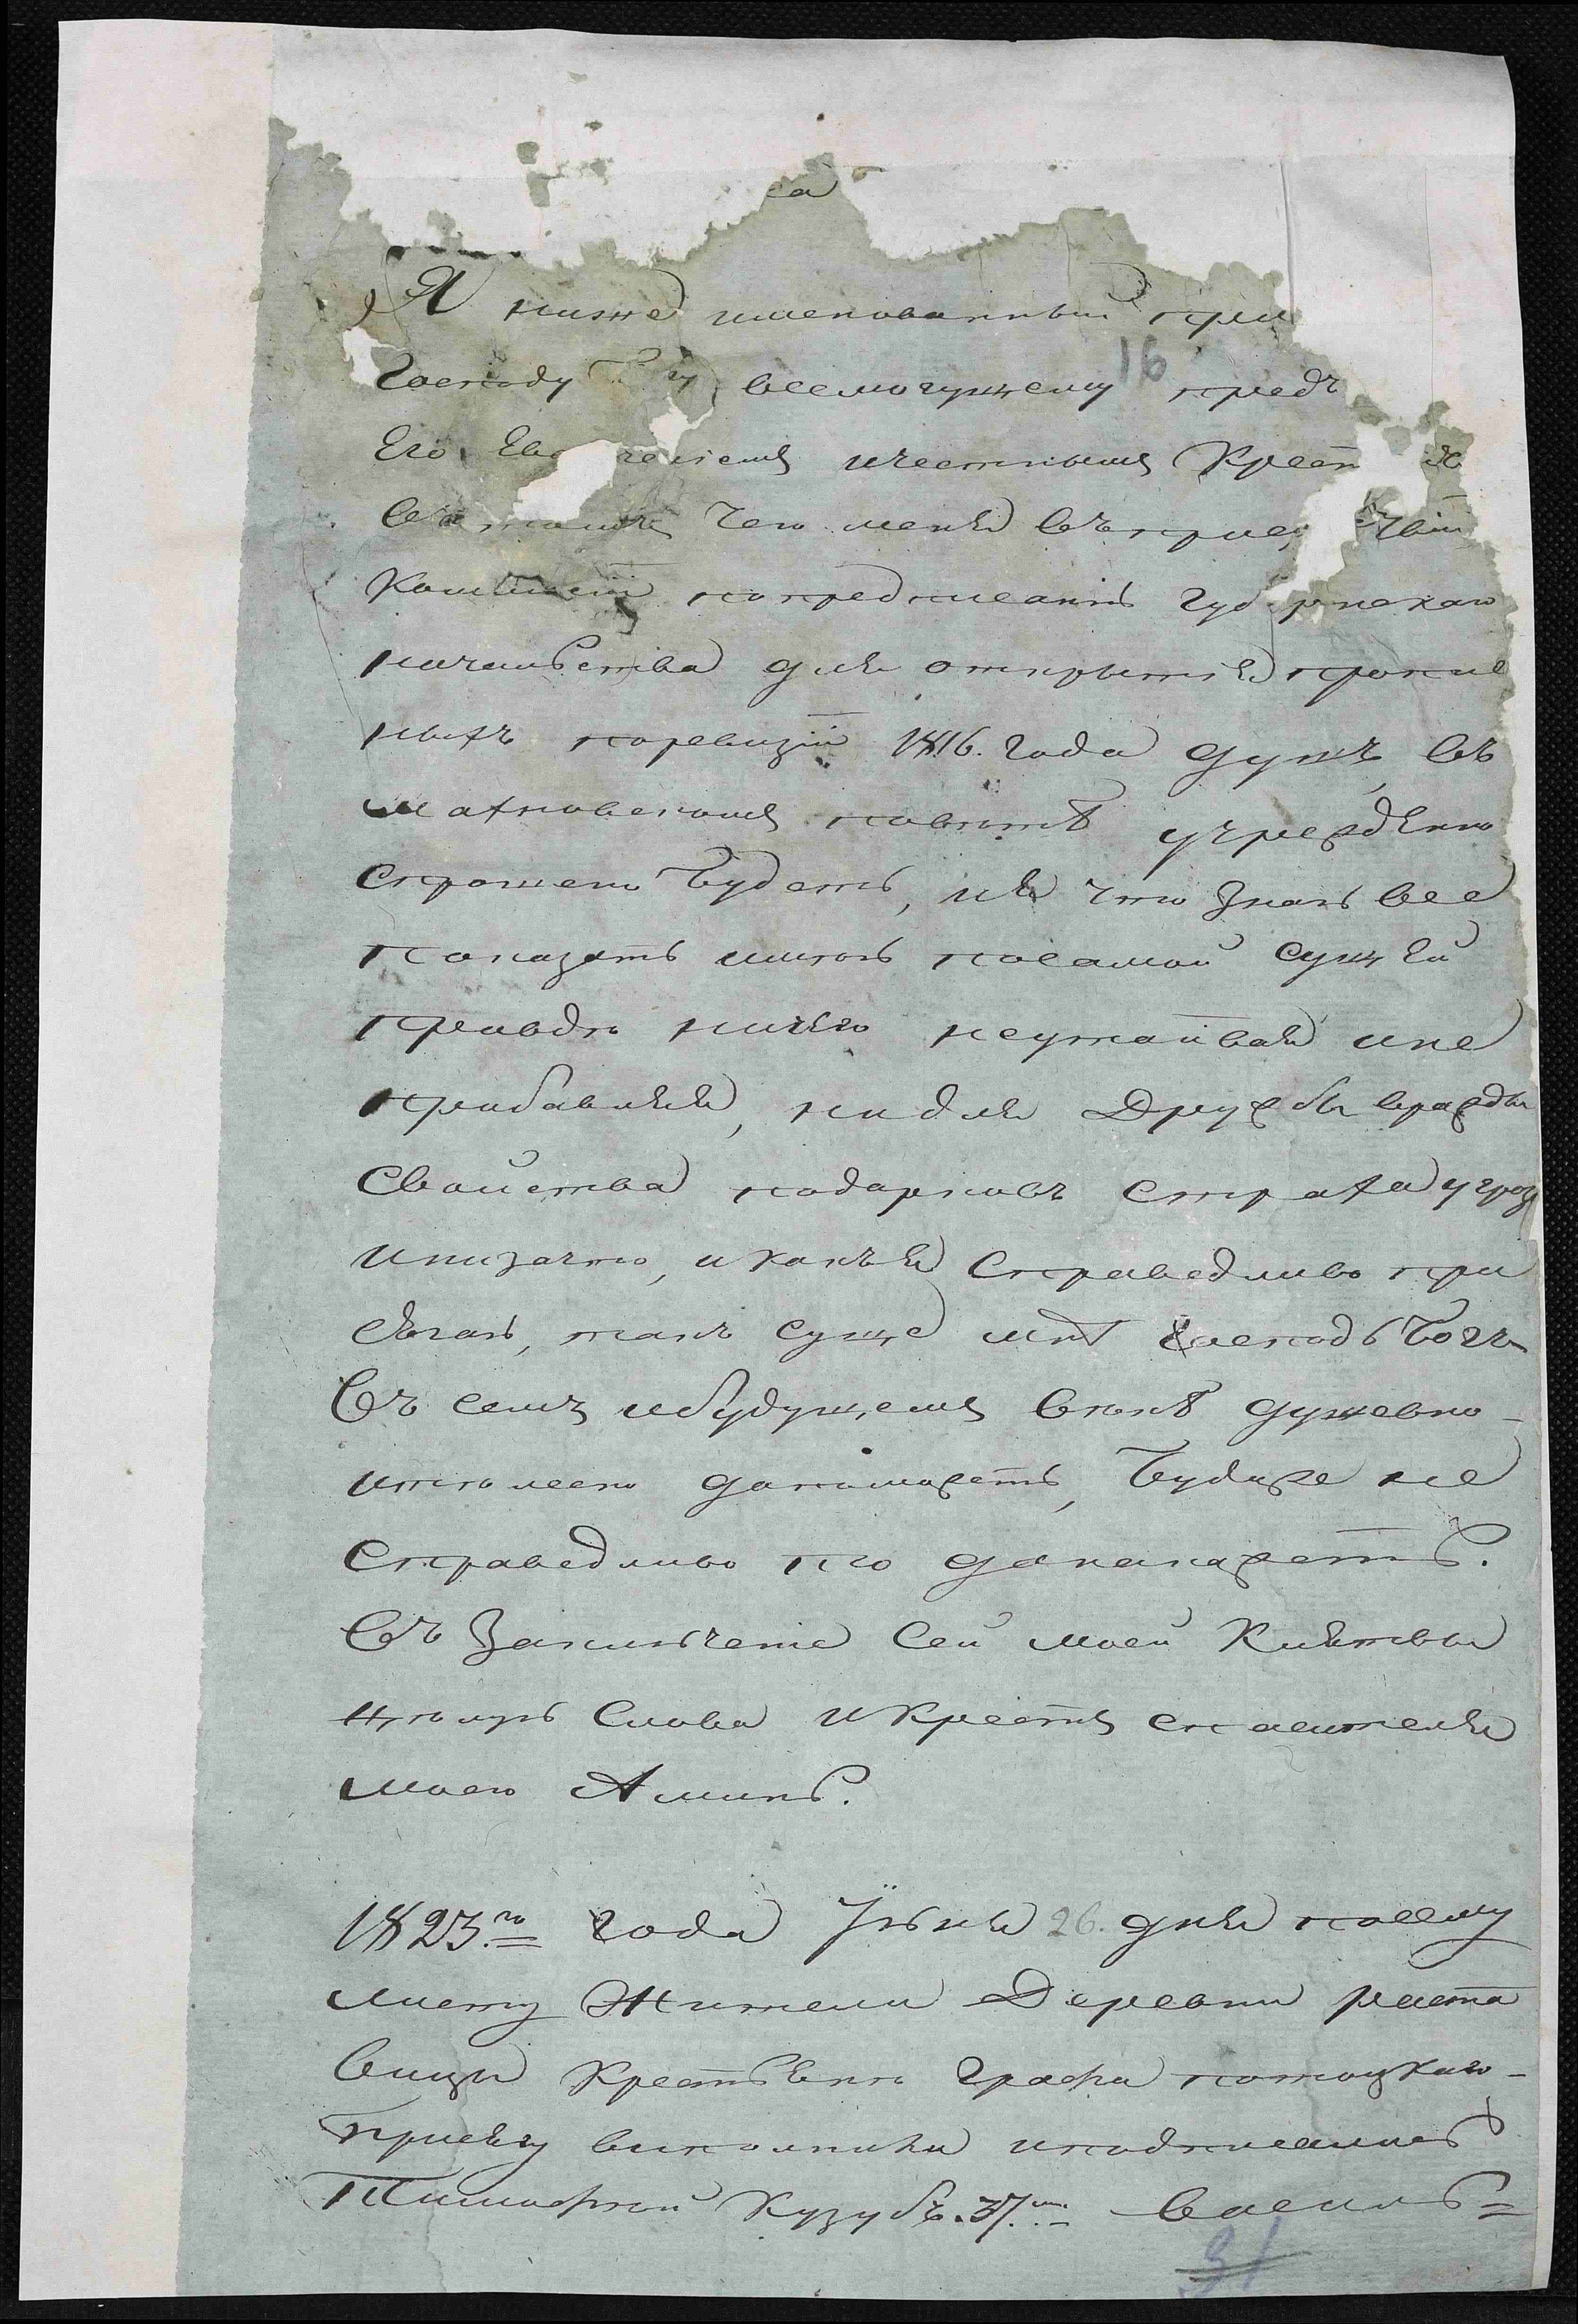 са
Я ниже именованный при
16
Господу Б гу всемогущему предъ
Его Ева гелиемъ ичестнымъ Крест
чего меня въ
Коммисіи попредписанію губернскаго
начальства для открытія пропис
ныхъ поревизіи 1816. года душъ, въ
махновскомъ поветѣ учрежденно
спрошено будетъ, ия что знаю все
показать имѣю посамой сущей
правдѣ ничего неутаивая ине
прибавляя, нидля дружбы вражды
свойства подарковъ страха угроз
инизачто, и какъ я справедливо при
сягаю, такъ суще мнѣ Господь Богъ
Въ семъ ибудущемъ векѣ душевно
ителесно да поможетъ, Будиже не
справедливо то да покажетъ.
Въ Заключеніе сей моей Клятвы
цѣлую Слова иКрестъ спасителя
моего Аминь.
1823.го года Іюня 26. дня посему
листу Жители Деревни раста
вицы Крестьяне графа потоцкаго
присягу выполнили иподписались
Тимофѣй Кузубъ. 37. Василь=
31